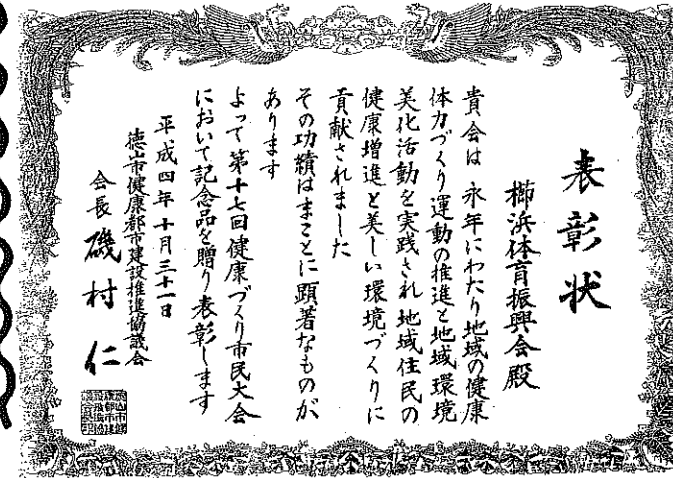 表彰状
櫛浜体育振興会殿
貴会は永年にわたり地域の健康
体力づくり運動の推進と地域環境
美化活動を実践され地域住民の
健康増進と美しい環境づくりに
貢献されました
その功績はまことに顕著なものが
あります
よって第十七回健康づくり市民大会
において記念品を贈り表彰します
平成四年十月三十一日
徳山市健康都市建設推進協議会
会長 磯村仁